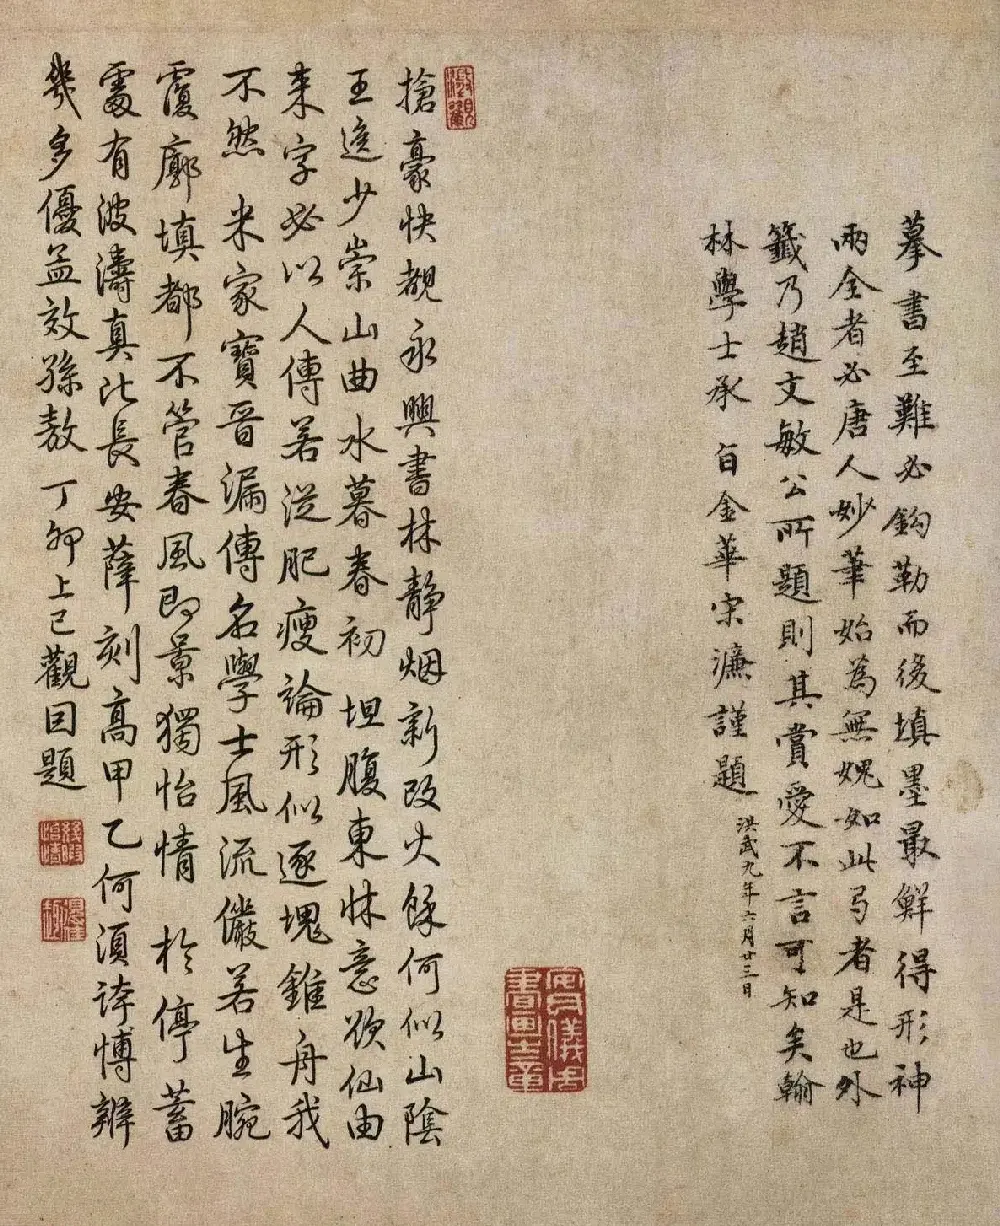 摹書至難必鈎勒而後填墨最鮮得形神
兩全者必唐人妙筆始為無媿如此弓者是也外
籤乃趙文敏公所題則其賞愛不言可知矣翰
林學士承旨金華宋濂謹題 洪武九年六月廿三日
安儀周家
書畫之章
搶豪快覩永興書林靜烟新改火餘何似山陰
王逸少崇山曲水暮春初 坦腹東牀意欲仙由
来字必以人傳若從肥瘦論形似逐塊錐舟我
不然 米家寶晋漏傳名學士風流儼若生腕
覆廓填都不管春風即景獨怡情 於停蓄
處有波濤真比長安薛刻高甲乙何須誇博辨
幾多優孟效孫敖 丁卯上巳觀因題
幾暇怡情
得佳趣